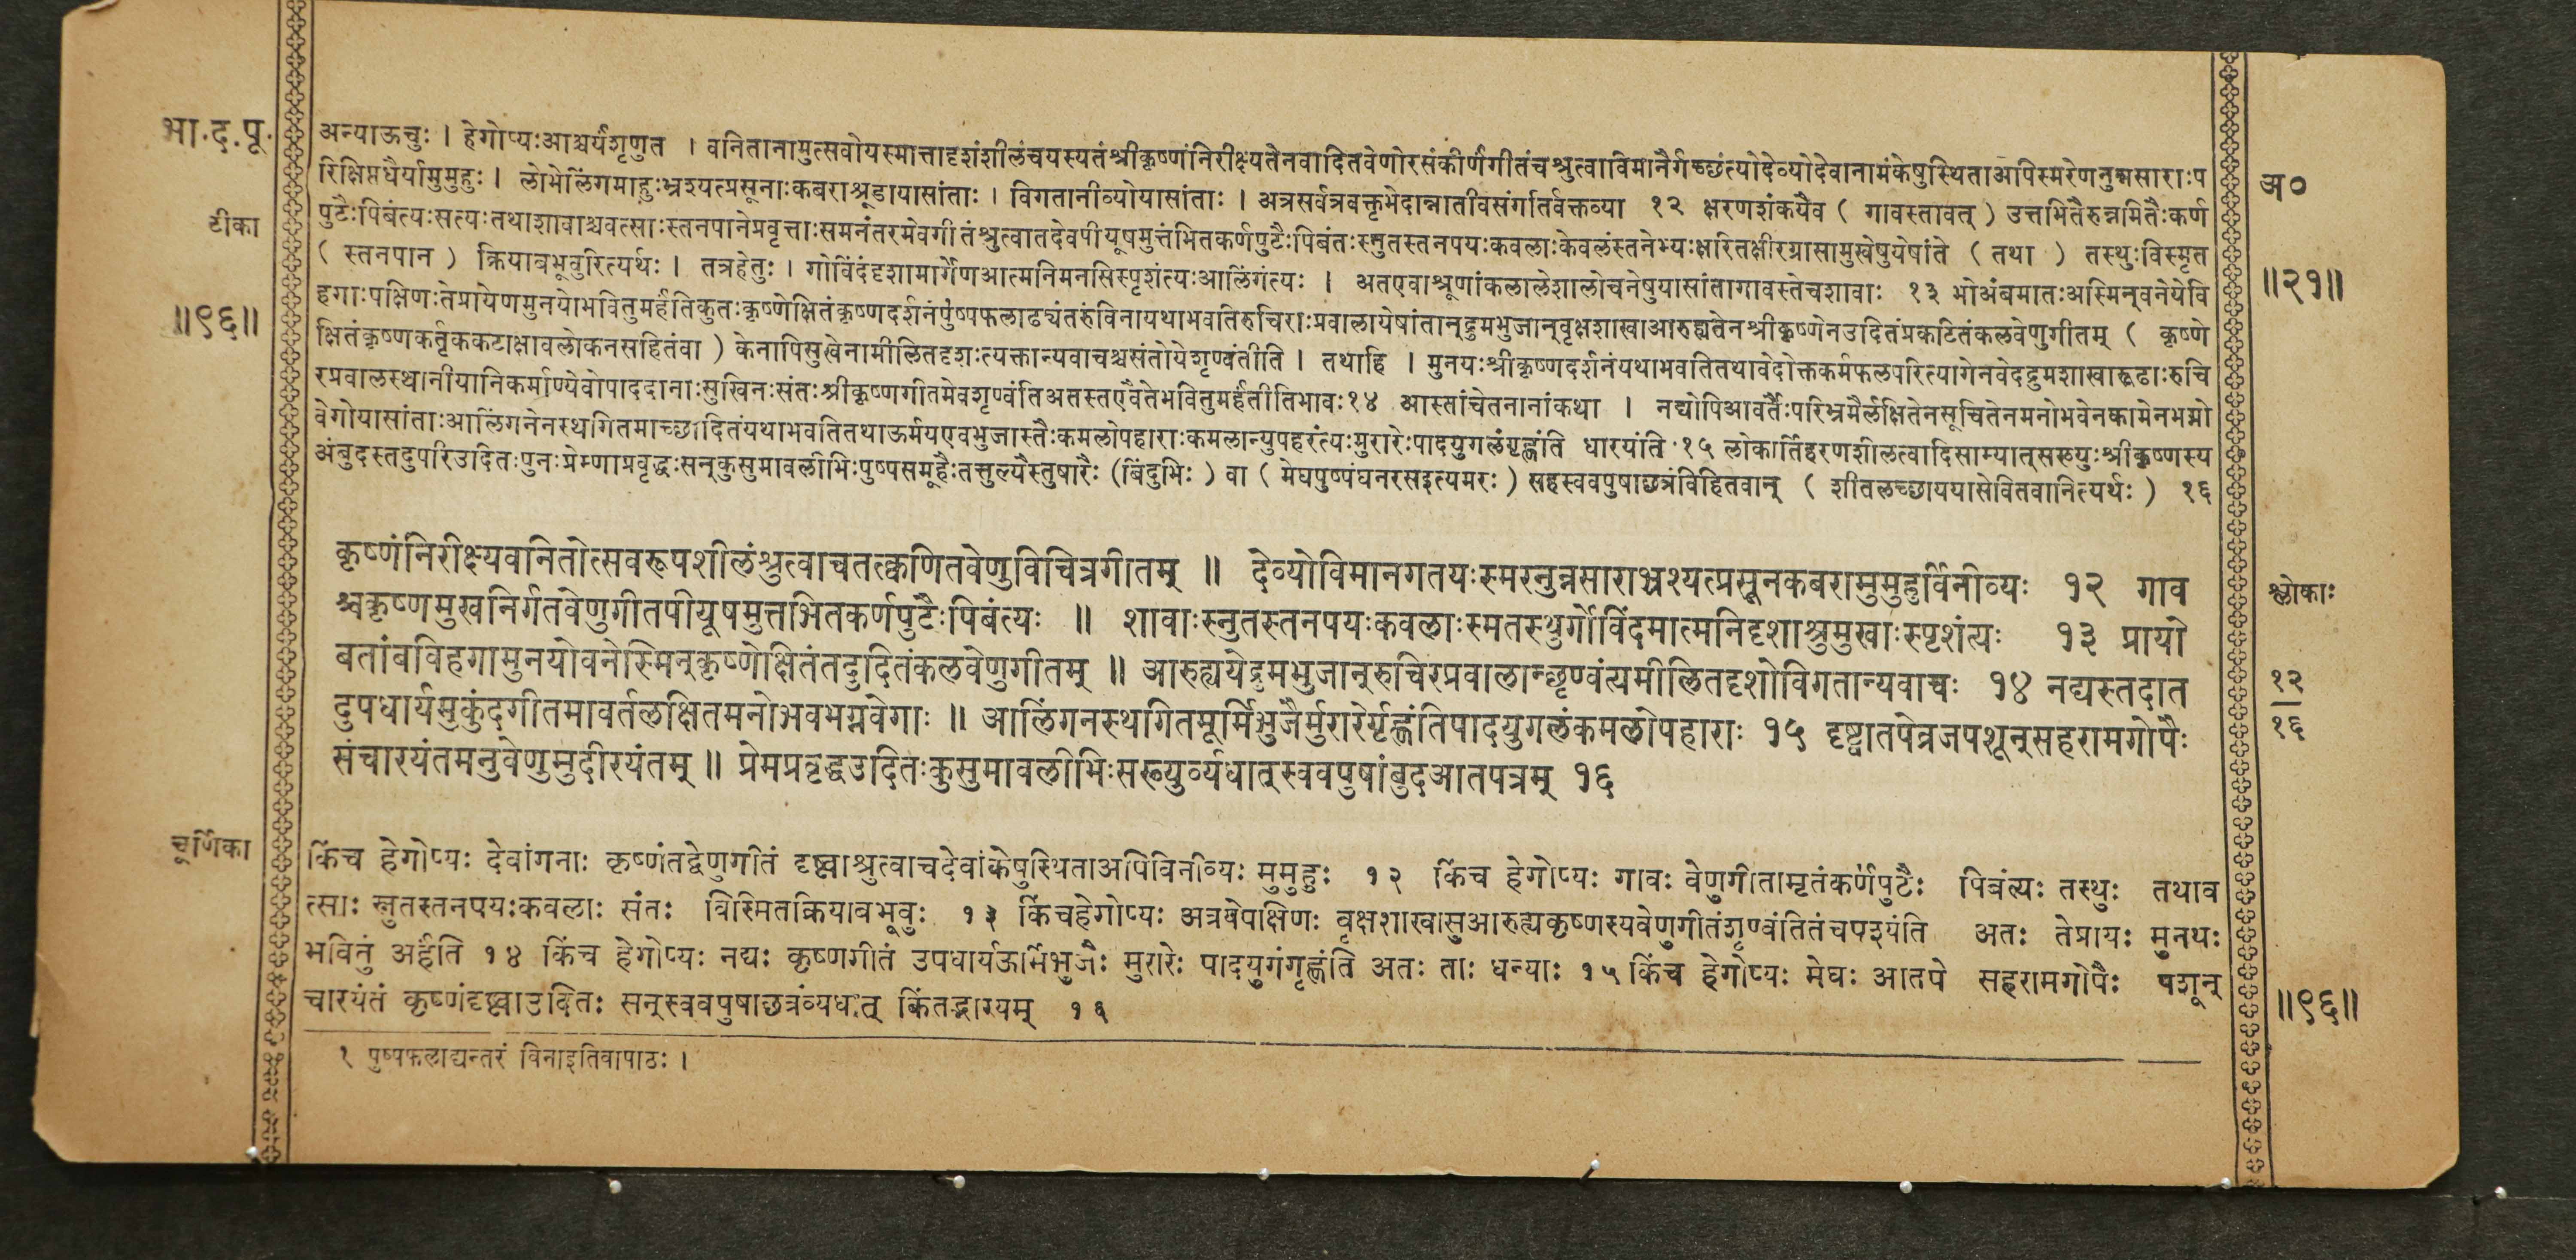 भा.द.पू.
टीका
॥९६॥
अन्याऊचुः । हेगोप्यःआश्चर्यंशृणुत । वनितानामुत्सवोयस्मात्तादृशंशीलंचयस्यतंश्रीकृष्णंनिरीक्ष्यतेनवादितवेणोरसंकीर्णगीतंचश्रुत्वाविमानैर्गच्छंत्योदेव्योदेवानामंकेषुस्थिताअपिस्मरेणनुन्नसाराःप
रिक्षिप्तधैर्यामुमुहुः । लोभेलिंगमाहुःभ्रश्यत्प्रसूनाःकबराश्चूडायासांताः । विगतानीव्योयासांताः । अत्रसर्वत्रवक्तृभेदान्नातीवसंगतिर्वक्तव्या १२ क्षरणशंकयैव ( गावस्तावत् ) उत्तभितैरुन्नमितैःकर्ण
पुटैःपिबंत्यःसत्यःतथाशावाश्चवत्साःस्तनपानेप्रवृत्ताःसमनंतरमेवगीतंश्रुत्वातदेवपीयूषमुत्तंभितकर्णपुटैःपिबंतःस्नुतस्तनपयःकवलाःकेवलंस्तनेभ्यःक्षारितक्षीरग्रासामुखेषुयेषांते ( तथा ) तस्थुःविस्मृत
( स्तनपान ) क्रियाबभूवुरित्यर्थः । तत्रहेतुः । गोविंदंदृशामार्गेणआत्मनिमनसिस्पृशंत्यःआलिंगंत्यः । अतएवाश्रूणांकलालेशालोचनेषुयासांतागावस्तेचशावाः १३ भोअंबमातःअस्मिन्वनेयेवि
हगाःपक्षिणःतेप्रायेणमुनयोभवितुमर्हंतिकुतःकृष्णेक्षितंकृष्णदर्शनंपुष्पफलाढ्यंतरुंविनायथाभवतिरुचिराःप्रवालायेषांतान्द्रुमभुजान्वृक्षशाखाआरुह्यतेनश्रीकृष्णेनउदितंप्रकटितंकलवेणुगीतम् ( कृष्णे
क्षितंकृष्णकर्तृककटाक्षावलोकनसहितंवा ) केनापिसुखेनामीलितदृशःत्यक्तान्यवाचश्चसंतोयेशृण्वंतीति । तथाहि । मुनयःश्रीकृष्णदर्शनंयथाभवतितथावेदोक्तकर्मफलपरित्यागेनवेदद्रुमशाखारूढाःरुचि
रप्रवालस्थानीयानिकर्माण्येवोपाददानाःसुखिनःसंतःश्रीकृष्णगीतमेवशृण्वंतिअतस्तएवैतेभवितुमर्हंतीतिभावः१४ आस्तांचेतनानांकथा । नद्योपिआवर्तैःपरिभ्रमैर्लक्षितेनसूचितेनमनोभवेनकामेनभग्नो
वेगोयासांताःआलिंगनेनस्थगितमाच्छादितंयथाभवतितथाऊर्मयएवभुजास्तैःकमलोपहाराःकमलान्युपहरंत्यःमुरारेःपादयुगलंगृह्णंति धारयंति १५ लोकार्तिहरणशीलत्वादिसाम्यात्सख्युःश्रीकृष्णस्य
अंबुदस्तदुपरिउदितःपुनःप्रेम्णाप्रवृद्धःसन्कुसुमावलीभिःपुष्पसमूहैःतत्तुल्यैस्तुषारैः (बिंदुभिः ) वा ( मेघपुष्पंघनरसइत्यमरः ) सहस्ववपुषाछत्रंविहितवान् ( शीतलच्छाययासेवितवानित्यर्थः ) १६
कृष्णंनिरीक्ष्यवनितोत्सवरूपशीलंश्रुत्वाचतत्क्वणितवेणुविचित्रगीतम् ॥ देव्योविमानगतयःस्मरनुन्नसाराभ्रश्यत्प्रसूनकबरामुमुहुर्विनीव्यः १२ गाव
श्चकृष्णमुखनिर्गतवेणुगीतपीयूषमुत्तभितकर्णपुटैःपिबंत्यः ॥ शावाःस्नुतस्तनपयःकवलाःस्मतस्थुर्गोविंदमात्मनिदृशाश्रुमुखाःस्पृशंत्यः १३ प्रायो
बतांबविहगामुनयोवनेस्मिन्कृष्णेक्षितंतदुदितंकलवेणुगीतम् ॥ आरुह्ययेद्रुमभुजान्रुचिरप्रवालान्छृण्वंत्यमीलितदृशोविगतान्यवाचः १४ नद्यस्तदात
दुपधार्यमुकुंदगीतमावर्तलक्षितमनोभवभग्नवेगाः ॥ आलिंगनस्थगितमूर्मिभुजैर्मुरारेर्गृह्णंतिपादयुगलंकमलोपहाराः १५ दृष्ट्वातपेव्रजपशून्सहरामगोपैः
संचारयंतमनुवेणुमुदीरयंतम् ॥ प्रेमप्रवृद्धउदितःकुसुमावलीभिःसख्युर्व्यधात्स्ववपुषांबुदआतपत्रम् १६
चूर्णिका
किंच हेगोप्यः देवांगनाः कृष्णंतद्वेणुगीतं दृष्ट्वाश्रुत्वाचदेवांकेषुस्थिताअपिविनीव्यः मुमुहुः १२ किंच हेगोप्यः गावः वेणुगीतामृतंकर्णपुटैः पिबंत्यः तस्थुः तथाव
त्साः स्नुतस्तनपयःकवलाः संतः विस्मितक्रियाबभूवुः १३ किंचहेगोप्यः अत्रयेपक्षिणः वृक्षशाखासुआरुह्यकृष्णस्यवेणुगीतंशृण्वंतितंचपश्यंति अतः तेप्रायः मुनयः
भवितुं अर्हंति १४ किंच हेगोप्यः नद्यः कृष्णगीतं उपधार्यऊर्मिभुजैः मुरारेः पादयुगंगृह्णंति अतः ताः धन्याः १५ किंच हेगोप्यः मेघः आतपे सहरामगोपैः पशून्
चारयंतं कृष्णंदृष्ट्वाउदितः सन्स्ववपुषाछत्रंव्यधात् किंतद्भाग्यम् १६
१ पुष्पफलाद्यन्तरं विनाइतिवापाठः ।
अ०
॥२१॥
श्लोकाः
१२
१६
॥९६॥